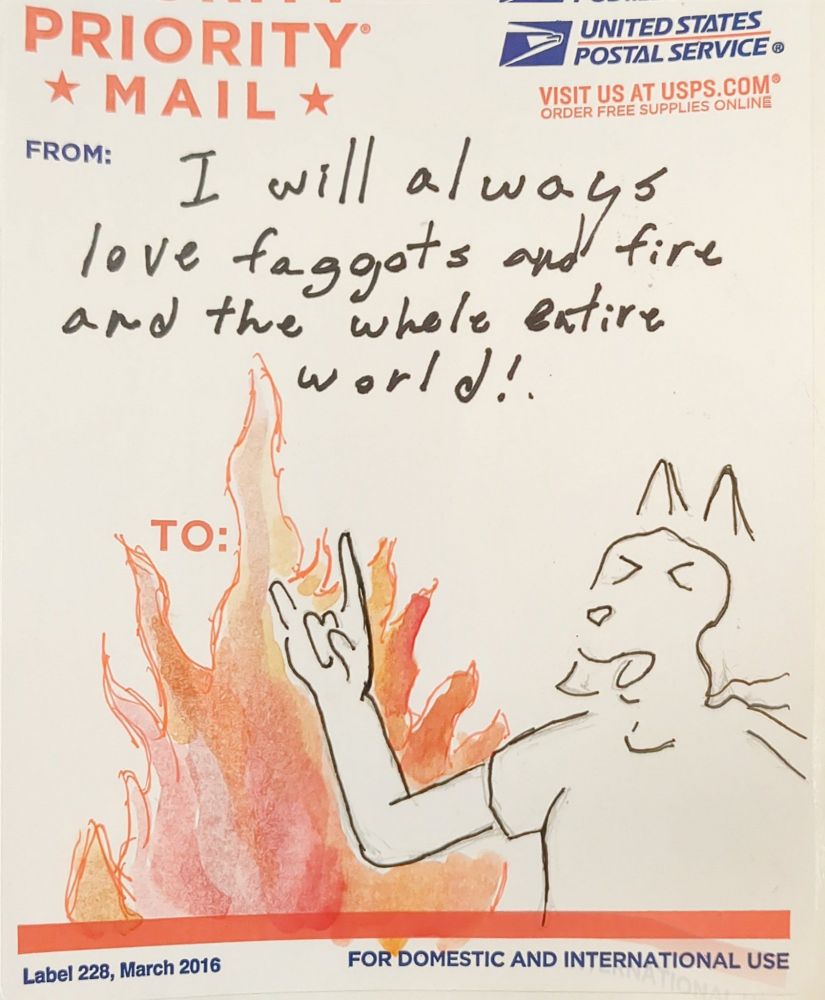 PRIORITY®
★ MAIL ★
UNITED STATES
POSTAL SERVICE®
VISIT US AT USPS.COM®
ORDER FREE SUPPLIES ONLINE
FROM:
I will always
love faggots and fire
and the whole entire
world!.
TO:
Label 228, March 2016
FOR DOMESTIC AND INTERNATIONAL USE